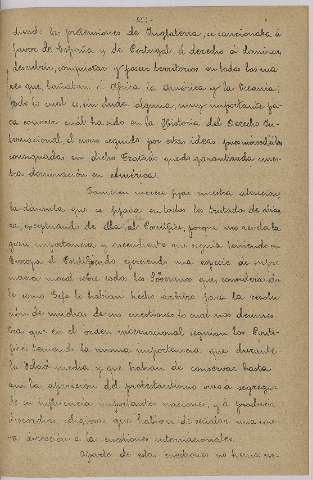 diendo las pretensiones de Inglaterra, se sancionaba á
favor de España y de Portugal el derecho á dominar,
descubrir, conquistar y poseer territorios en todos los ma-
res que bañaban el África la América y la Oceanía,
todo lo cual es, sin duda alguna, muy importante pa-
ra conocer cual ha sido en la Historia del Derecho In-
ternacional, el rumo seguido por estas ideas pues merced á las
consignadas en dicho Tratado quedó garantizada nues-
tra dominación en América.
También merece fijar nuestra atención
la cláusula que se fijaba en todos los tratados de alian-
za, exceptuando de ella al Pontífice, porque nos revela la
gran importancia y ascendiente que seguía teniendo en
Europa el Pontificado ejerciendo una especie de supre-
macía moral sobre todos los Gobiernos que, considerándo-
le como Jefe le habían hecho árbitro para la resolu-
ción de muchas de sus cuestiones lo cual nos demues-
tra que en el orden internacional seguían los Pontí-
fices teniendo la misma importancia que durante
la Edad media y que habían de conservar hasta
que la aparición del protestantismo vino á segregar
de su influencia importantes naciones, y á producir
discordias religiosas que habían de señalar una nue-
va dirección a las cuestiones internacionales.
Aparte de estas cuestiones no hemos